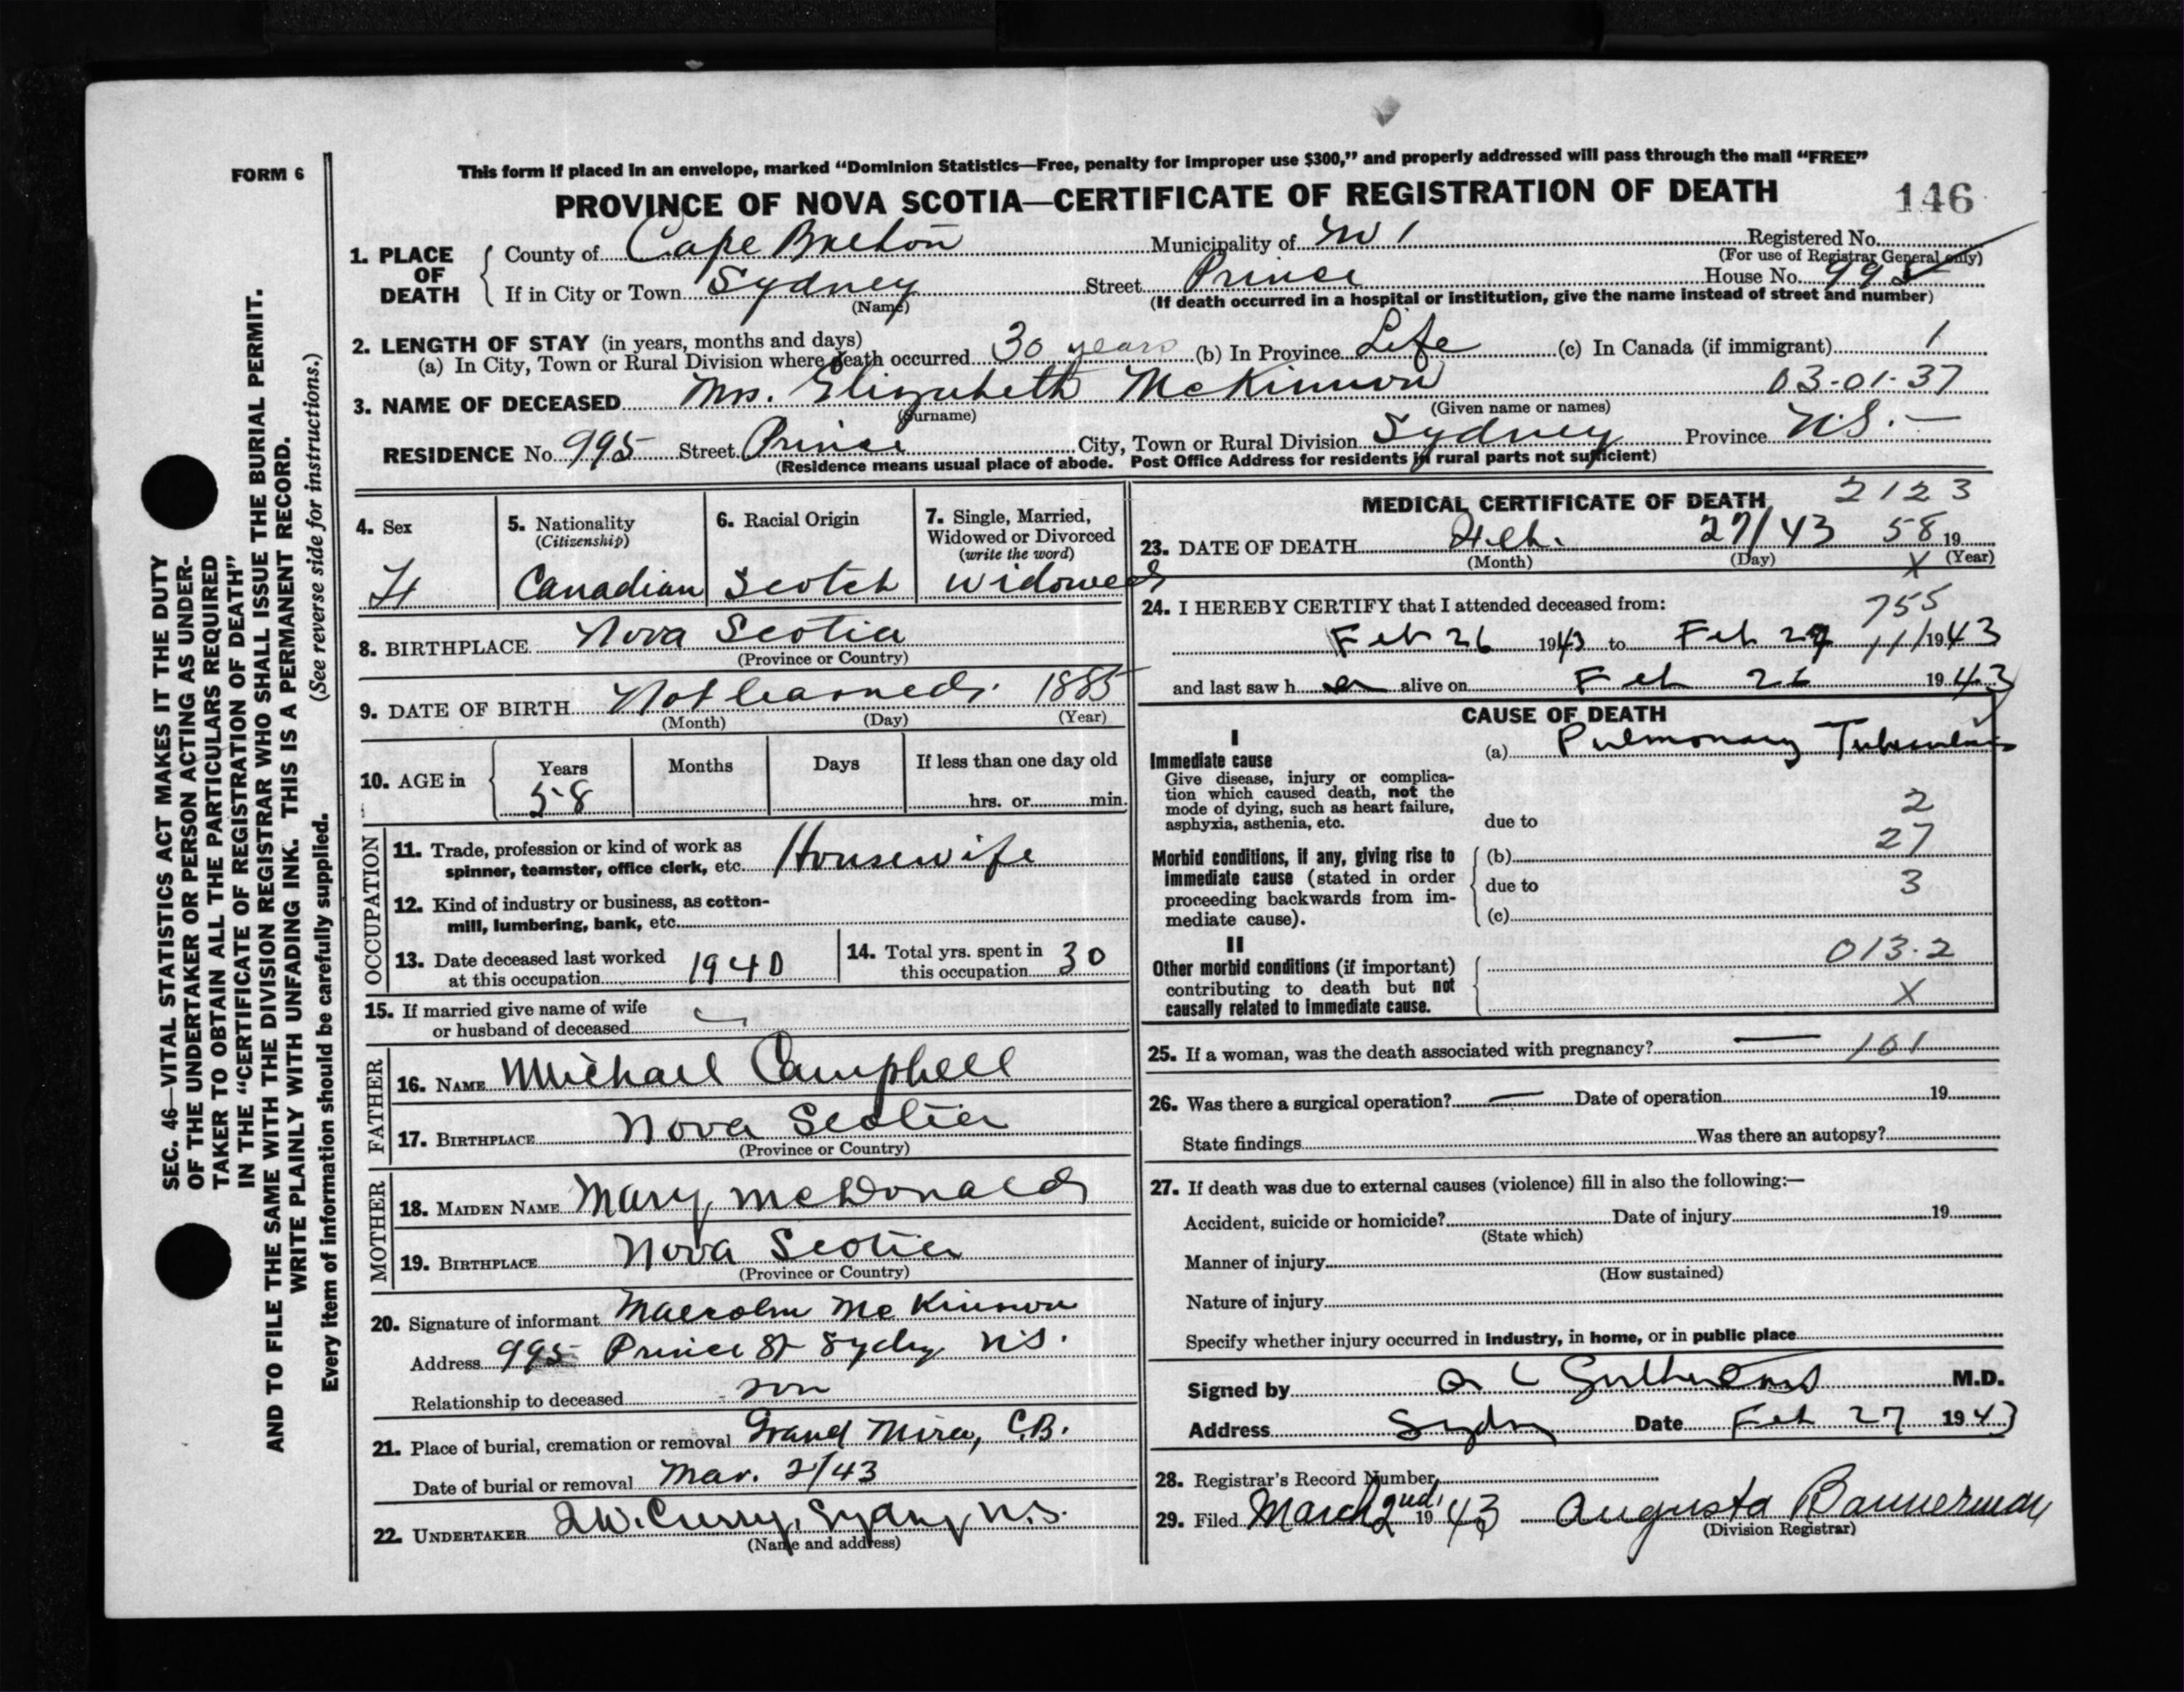 FORM 6
This form if placed in an envelope, marked “Dominion Statistics—Free, penalty for improper use $300,” and properly addressed will pass through the mail “FREE”
PROVINCE OF NOVA SCOTIA—CERTIFICATE OF REGISTRATION OF DEATH 146
1. PLACE OF DEATH
County of Cape Breton Municipality of W 1 Registered No.
(For use of Registrar General only)
If in City or Town Sydney Street Prince House No. 995
(Name) (If death occurred in a hospital or institution, give the name instead of street and number)
2. LENGTH OF STAY (in years, months and days)
(a) In City, Town or Rural Division where death occurred 30 years (b) In Province Life (c) In Canada (if immigrant) 1
3. NAME OF DECEASED Mrs. Elizabeth McKinnon 03-01-37
(Surname) (Given name or names)
RESIDENCE No. 995 Street Prince City, Town or Rural Division Sydney Province N.S. —
(Residence means usual place of abode. Post Office Address for residents in rural parts not sufficient)
4. Sex
F
5. Nationality
(Citizenship)
Canadian
6. Racial Origin
Scotch
7. Single, Married,
Widowed or Divorced
(write the word)
Widowed
8. BIRTHPLACE Nova Scotia
(Province or Country)
9. DATE OF BIRTH Not learned. 1885
(Month) (Day) (Year)
10. AGE in Years Months Days If less than one day old
58 hrs. or min.
OCCUPATION
11. Trade, profession or kind of work as
spinner, teamster, office clerk, etc. Housewife
12. Kind of industry or business, as cotton-
mill, lumbering, bank, etc.
13. Date deceased last worked
at this occupation 1940
14. Total yrs. spent in
this occupation 30
15. If married give name of wife
or husband of deceased
FATHER
16. NAME Michael Campbell
17. BIRTHPLACE Nova Scotia
(Province or Country)
MOTHER
18. MAIDEN NAME Mary McDonald
19. BIRTHPLACE Nova Scotia
(Province or Country)
20. Signature of informant Malcolm McKinnon
Address 995 Prince St Sydney N.S.
Relationship to deceased son
21. Place of burial, cremation or removal Grand Mira, C.B.
Date of burial or removal Mar. 2/43
22. UNDERTAKER W. Curry, Sydney N.S.
(Name and address)
MEDICAL CERTIFICATE OF DEATH 2123
23. DATE OF DEATH Feb. 27/43 58 19
(Month) (Day) X (Year)
24. I HEREBY CERTIFY that I attended deceased from: 755
Feb 26 1943 to Feb 27 111 1943
and last saw her alive on Feb 26 1943
CAUSE OF DEATH
I
Immediate cause (a) Pulmonary Tuberculosis
Give disease, injury or complica-
tion which caused death, not the
mode of dying, such as heart failure,
asphyxia, asthenia, etc. due to 2
27
Morbid conditions, if any, giving rise to (b)
immediate cause (stated in order due to 3
proceeding backwards from im-
mediate cause). (c)
II
Other morbid conditions (if important) 013.2
contributing to death but not
causally related to immediate cause. X
25. If a woman, was the death associated with pregnancy? — 101
26. Was there a surgical operation? — Date of operation 19
State findings Was there an autopsy?
27. If death was due to external causes (violence) fill in also the following:—
Accident, suicide or homicide? Date of injury 19
(State which)
Manner of injury
(How sustained)
Nature of injury
Specify whether injury occurred in industry, in home, or in public place
Signed by Sutherland M.D.
Address Sydney Date Feb 27 1943
28. Registrar's Record Number
29. Filed March 2nd, 1943 Augusta Bannerman
(Division Registrar)
SEC. 46—VITAL STATISTICS ACT MAKES IT THE DUTY
OF THE UNDERTAKER OR PERSON ACTING AS UNDER-
TAKER TO OBTAIN ALL THE PARTICULARS REQUIRED
IN THE “CERTIFICATE OF REGISTRATION OF DEATH”
AND TO FILE THE SAME WITH THE DIVISION REGISTRAR WHO SHALL ISSUE THE BURIAL PERMIT.
WRITE PLAINLY WITH UNFADING INK. THIS IS A PERMANENT RECORD.
Every item of information should be carefully supplied. (See reverse side for instructions.)